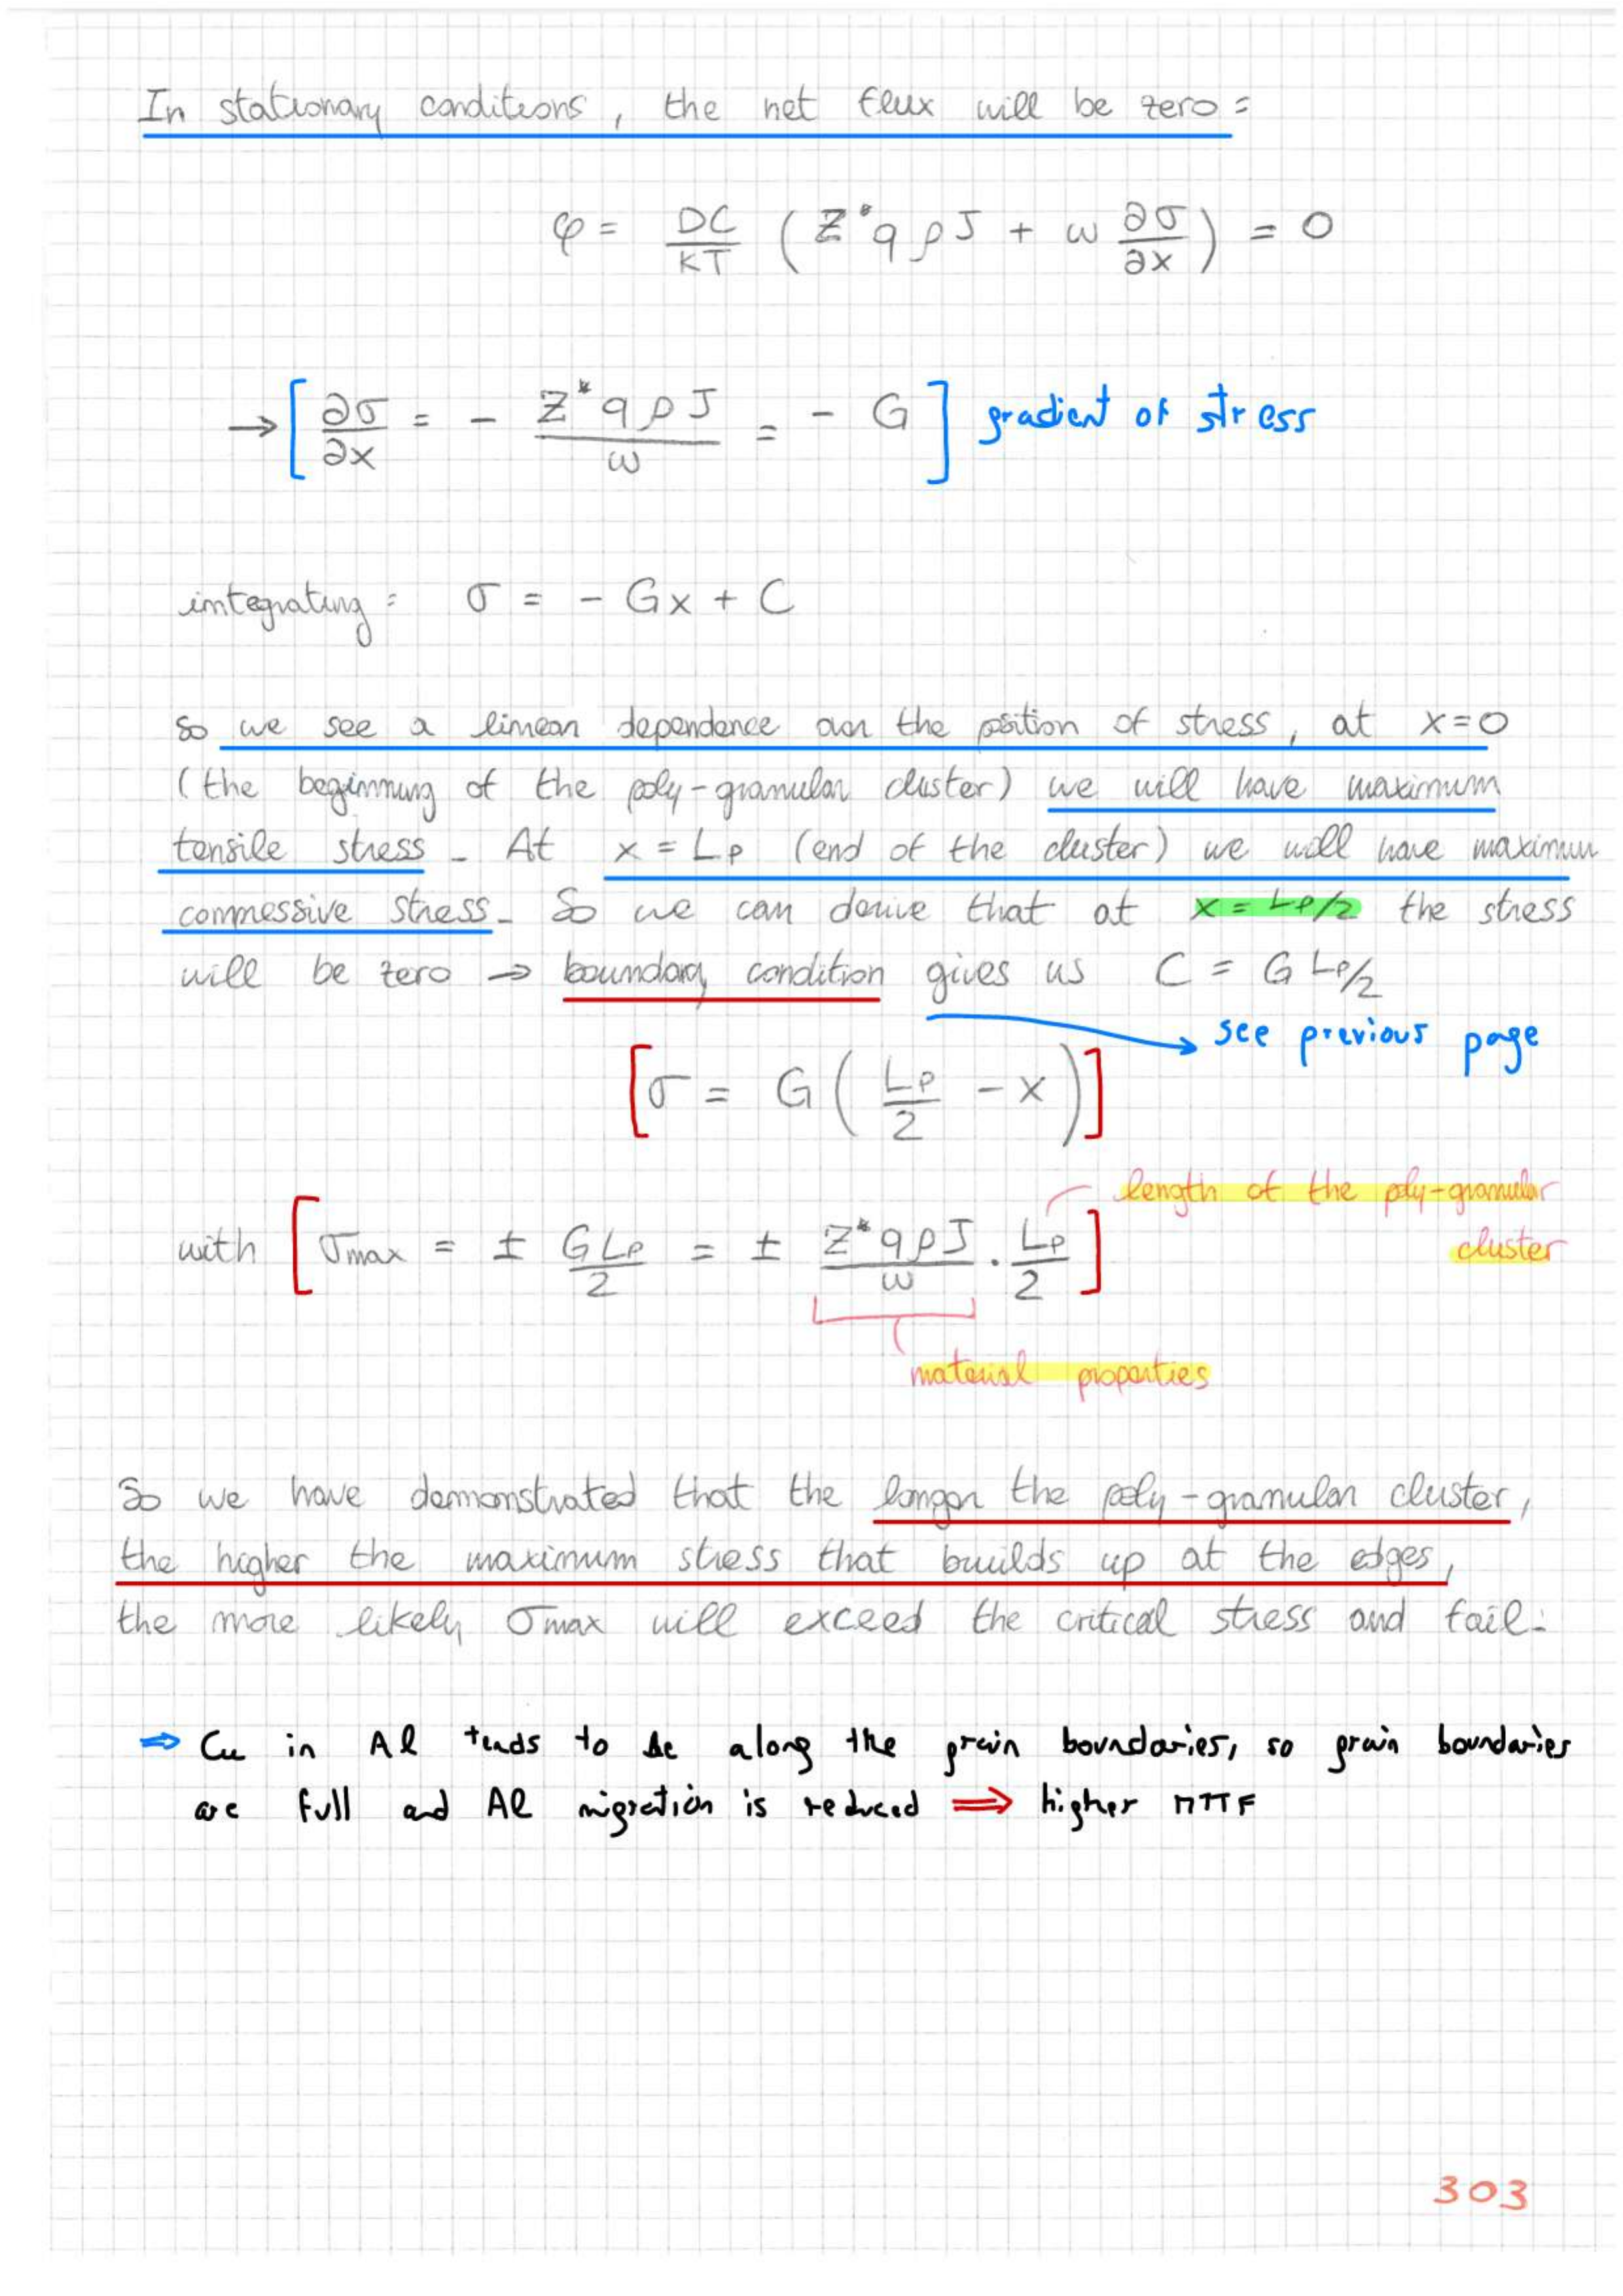 In stationary conditions, the net flux will be zero:
φ = DC/KT (Z*qρJ + ω ∂σ/∂x) = 0
→ [∂σ/∂x = - Z*qρJ/ω = - G] gradient of stress
integrating: σ = - Gx + C
So we see a linear dependence on the position of stress, at x=0
(the beginning of the poly-granular cluster) we will have maximum
tensile stress. At x = Lp (end of the cluster) we will have maximum
commessive stress. So we can derive that at x = Lp/2 the stress
will be zero → boundary condition gives us C = G Lp/2
see previous page
[σ = G(Lp/2 - x)]
length of the poly-granular
cluster
with [σmax = ± GLp/2 = ± Z*qρJ/ω · Lp/2]
material properties
So we have demonstrated that the longer the poly-granular cluster,
the higher the maximum stress that builds up at the edges,
the more likely σmax will exceed the critical stress and fail.
⇒ Cu in Al tends to be along the grain boundaries, so grain boundaries
are full and Al migration is reduced ⇒ higher MTTF
303